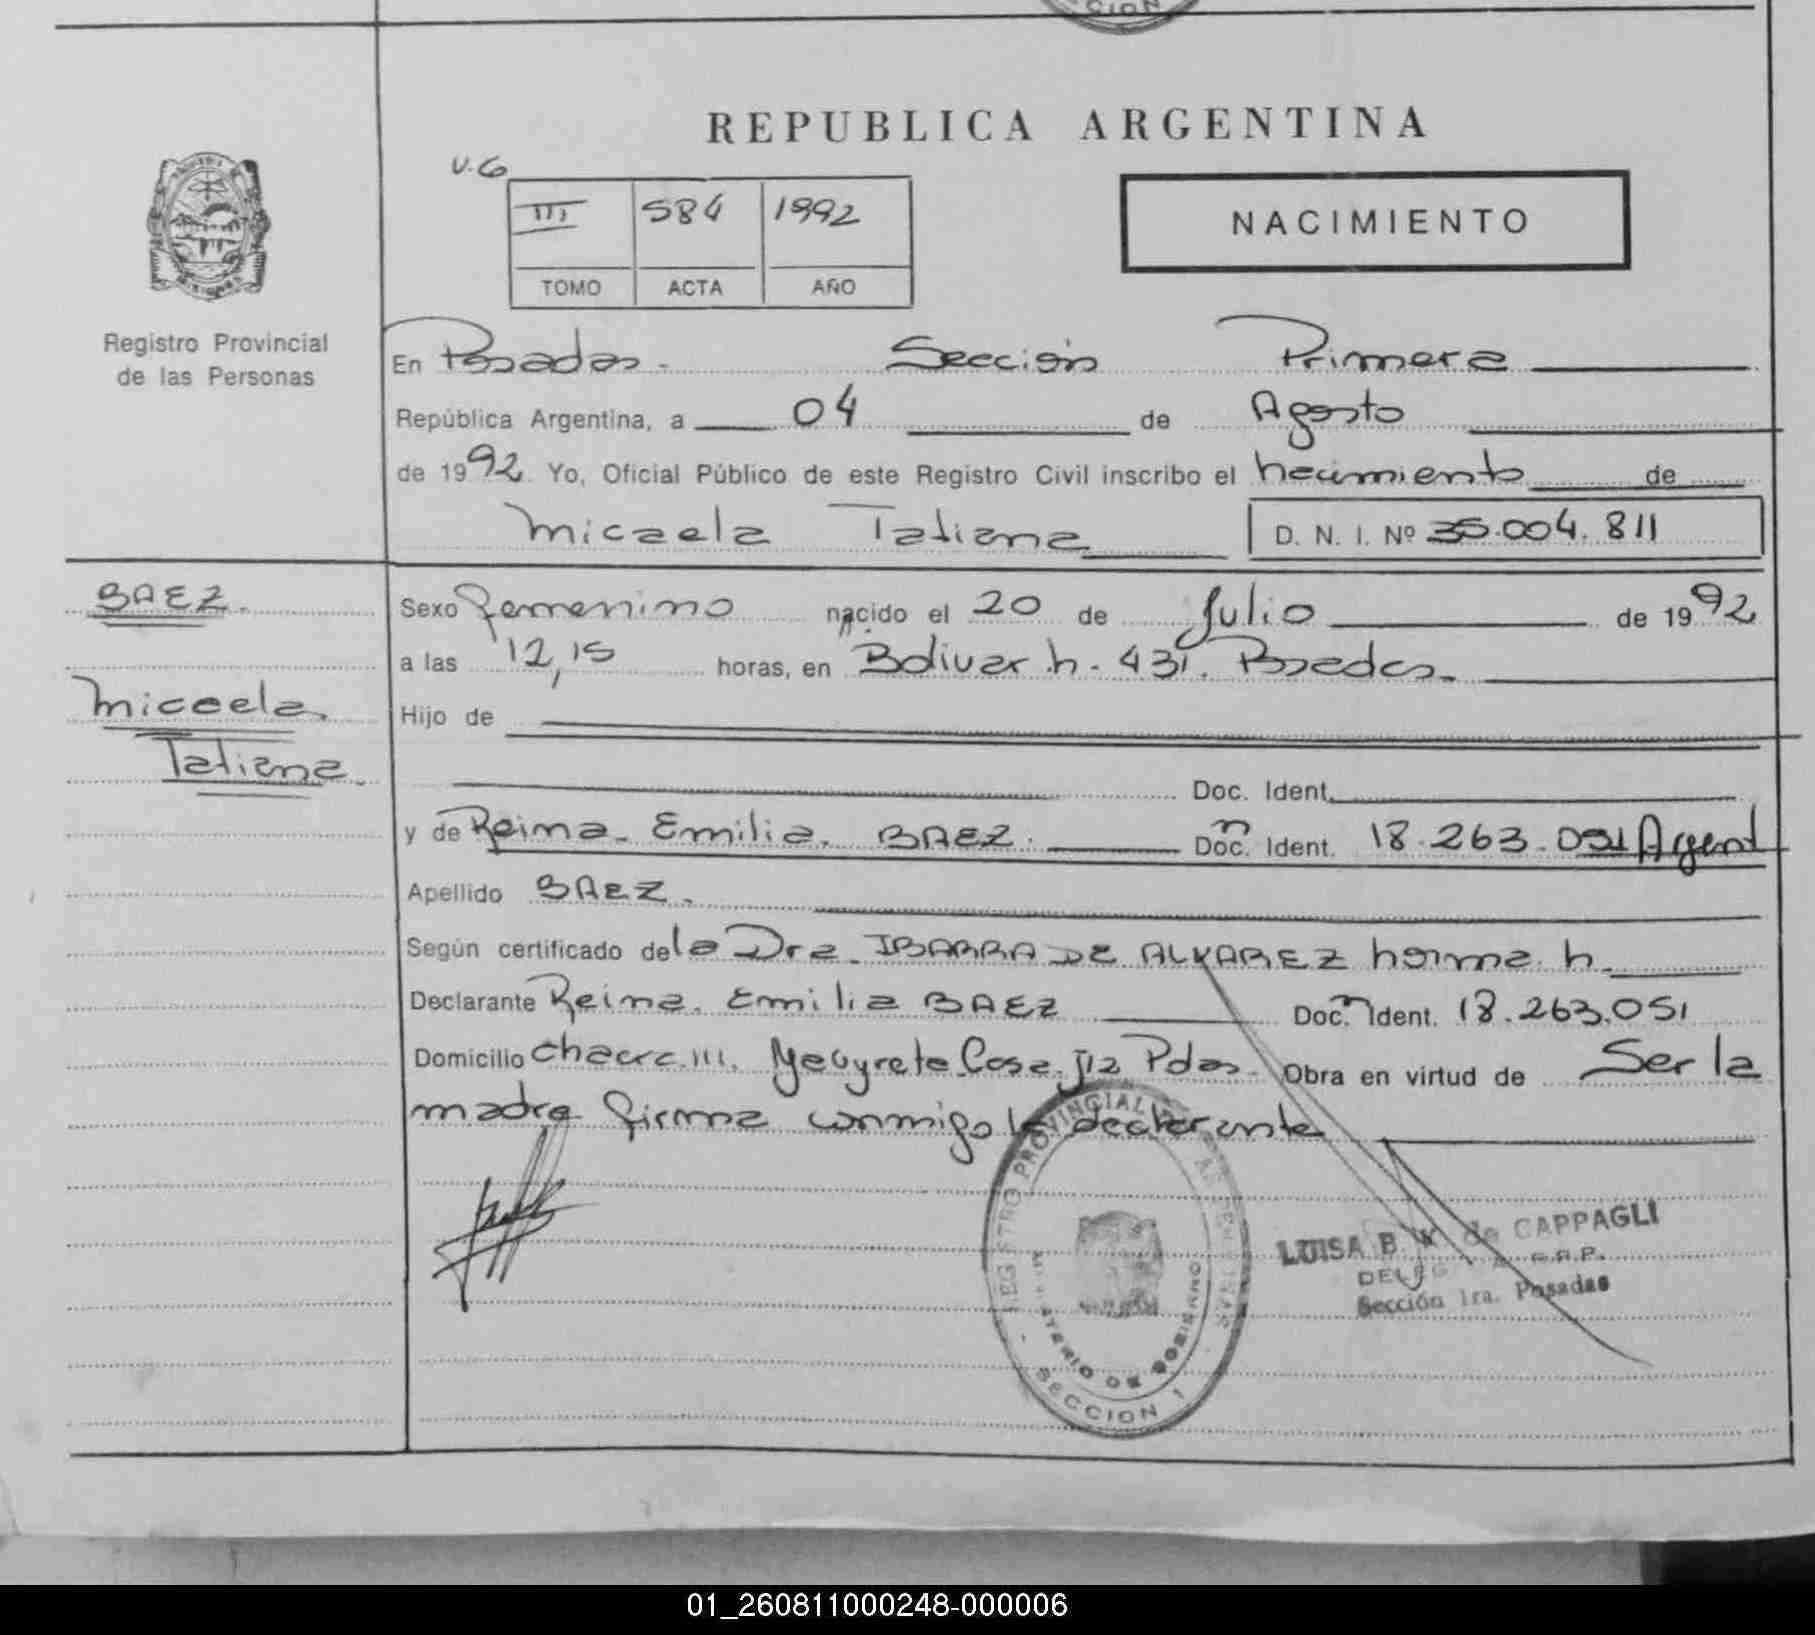 CCION
REPUBLICA ARGENTINA
V.G
III 584 1992
TOMO ACTA AÑO
NACIMIENTO
Registro Provincial
de las Personas
En Posadas. Sección Primera
República Argentina, a 04 de Agosto
de 1992 Yo, Oficial Público de este Registro Civil inscribo el nacimiento de
Micaela Tatiana D. N. I. Nº 35.004.811
BAEZ.
Micaela
Tatiana
Sexo femenino nacido el 20 de Julio de 1992
a las 12,15 horas, en Bolivar n. 431. Posadas.
Hijo de
Doc. Ident.
y de Reina Emilia BAEZ. Doc. Ident. 18.263.051 Argent
Apellido BAEZ.
Según certificado de la Dra. IBARRA DE ALVAREZ Norma N.
Declarante Reina Emilia BAEZ Doc. Ident. 18.263.051
Domicilio Chacra 111. Yacyreta Casa J12 Pdas. Obra en virtud de Ser la
madre firma conmigo la declarante
REGISTRO PROVINCIAL DE LAS PERSONAS
MINISTERIO DE GOBIERNO
- SECCION 1 -
LUISA B. de CAPPAGLI
Sección 1ra. Posadas
01_260811000248-000006